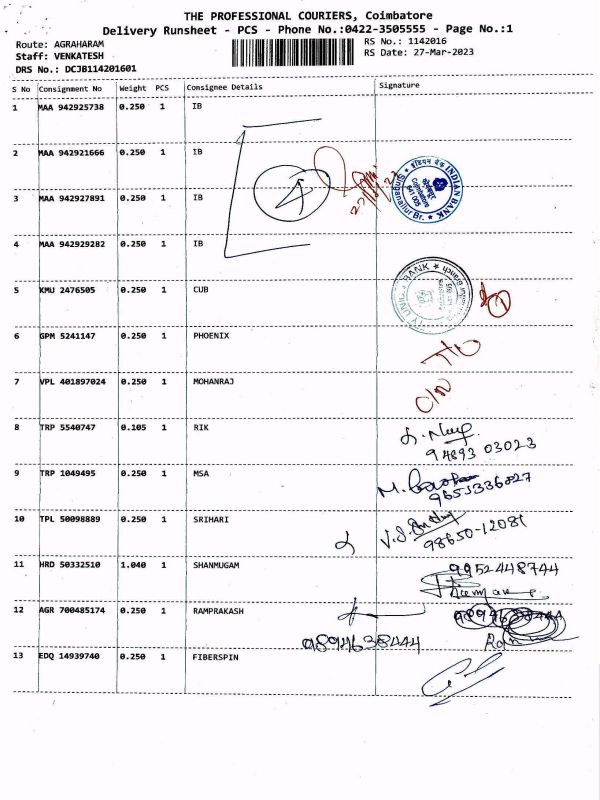 THE PROFESSIONAL COURIERS, Coimbatore
Delivery Runsheet - PCS - Phone No.:0422-3505555 - Page No.:1
Route: AGRAHARAM
RS No.: 1142016
Staff: VENKATESH
RS Date: 27-Mar-2023
DRS No.: DCJB114201601
S No Consignment No Weight PCS Consignee Details Signature
1 MAA 942925738 0.250 1 IB
2 MAA 942921666 0.250 1 IB
3 MAA 942927891 0.250 1 IB
4
INDIAN BANK
इंडियन बैंक
Coimbatore
641 005
Singanallur Br.
4 MAA 942929282 0.250 1 IB
5 KMU 2476505 0.250 1 CUB
6 GPM 5241147 0.250 1 PHOENIX
7 VPL 401897024 0.250 1 MOHANRAJ
8 TRP 5540747 0.105 1 RIK
94893 03023
9 TRP 1049495 0.250 1 MSA
9655336827
10 TPL 50098889 0.250 1 SRIHARI
98650-12081
11 HRD 50332510 1.040 1 SHANMUGAM
9952448744
12 AGR 700485174 0.250 1 RAMPRAKASH
9894638444
13 EDQ 14939740 0.250 1 FIBERSPIN